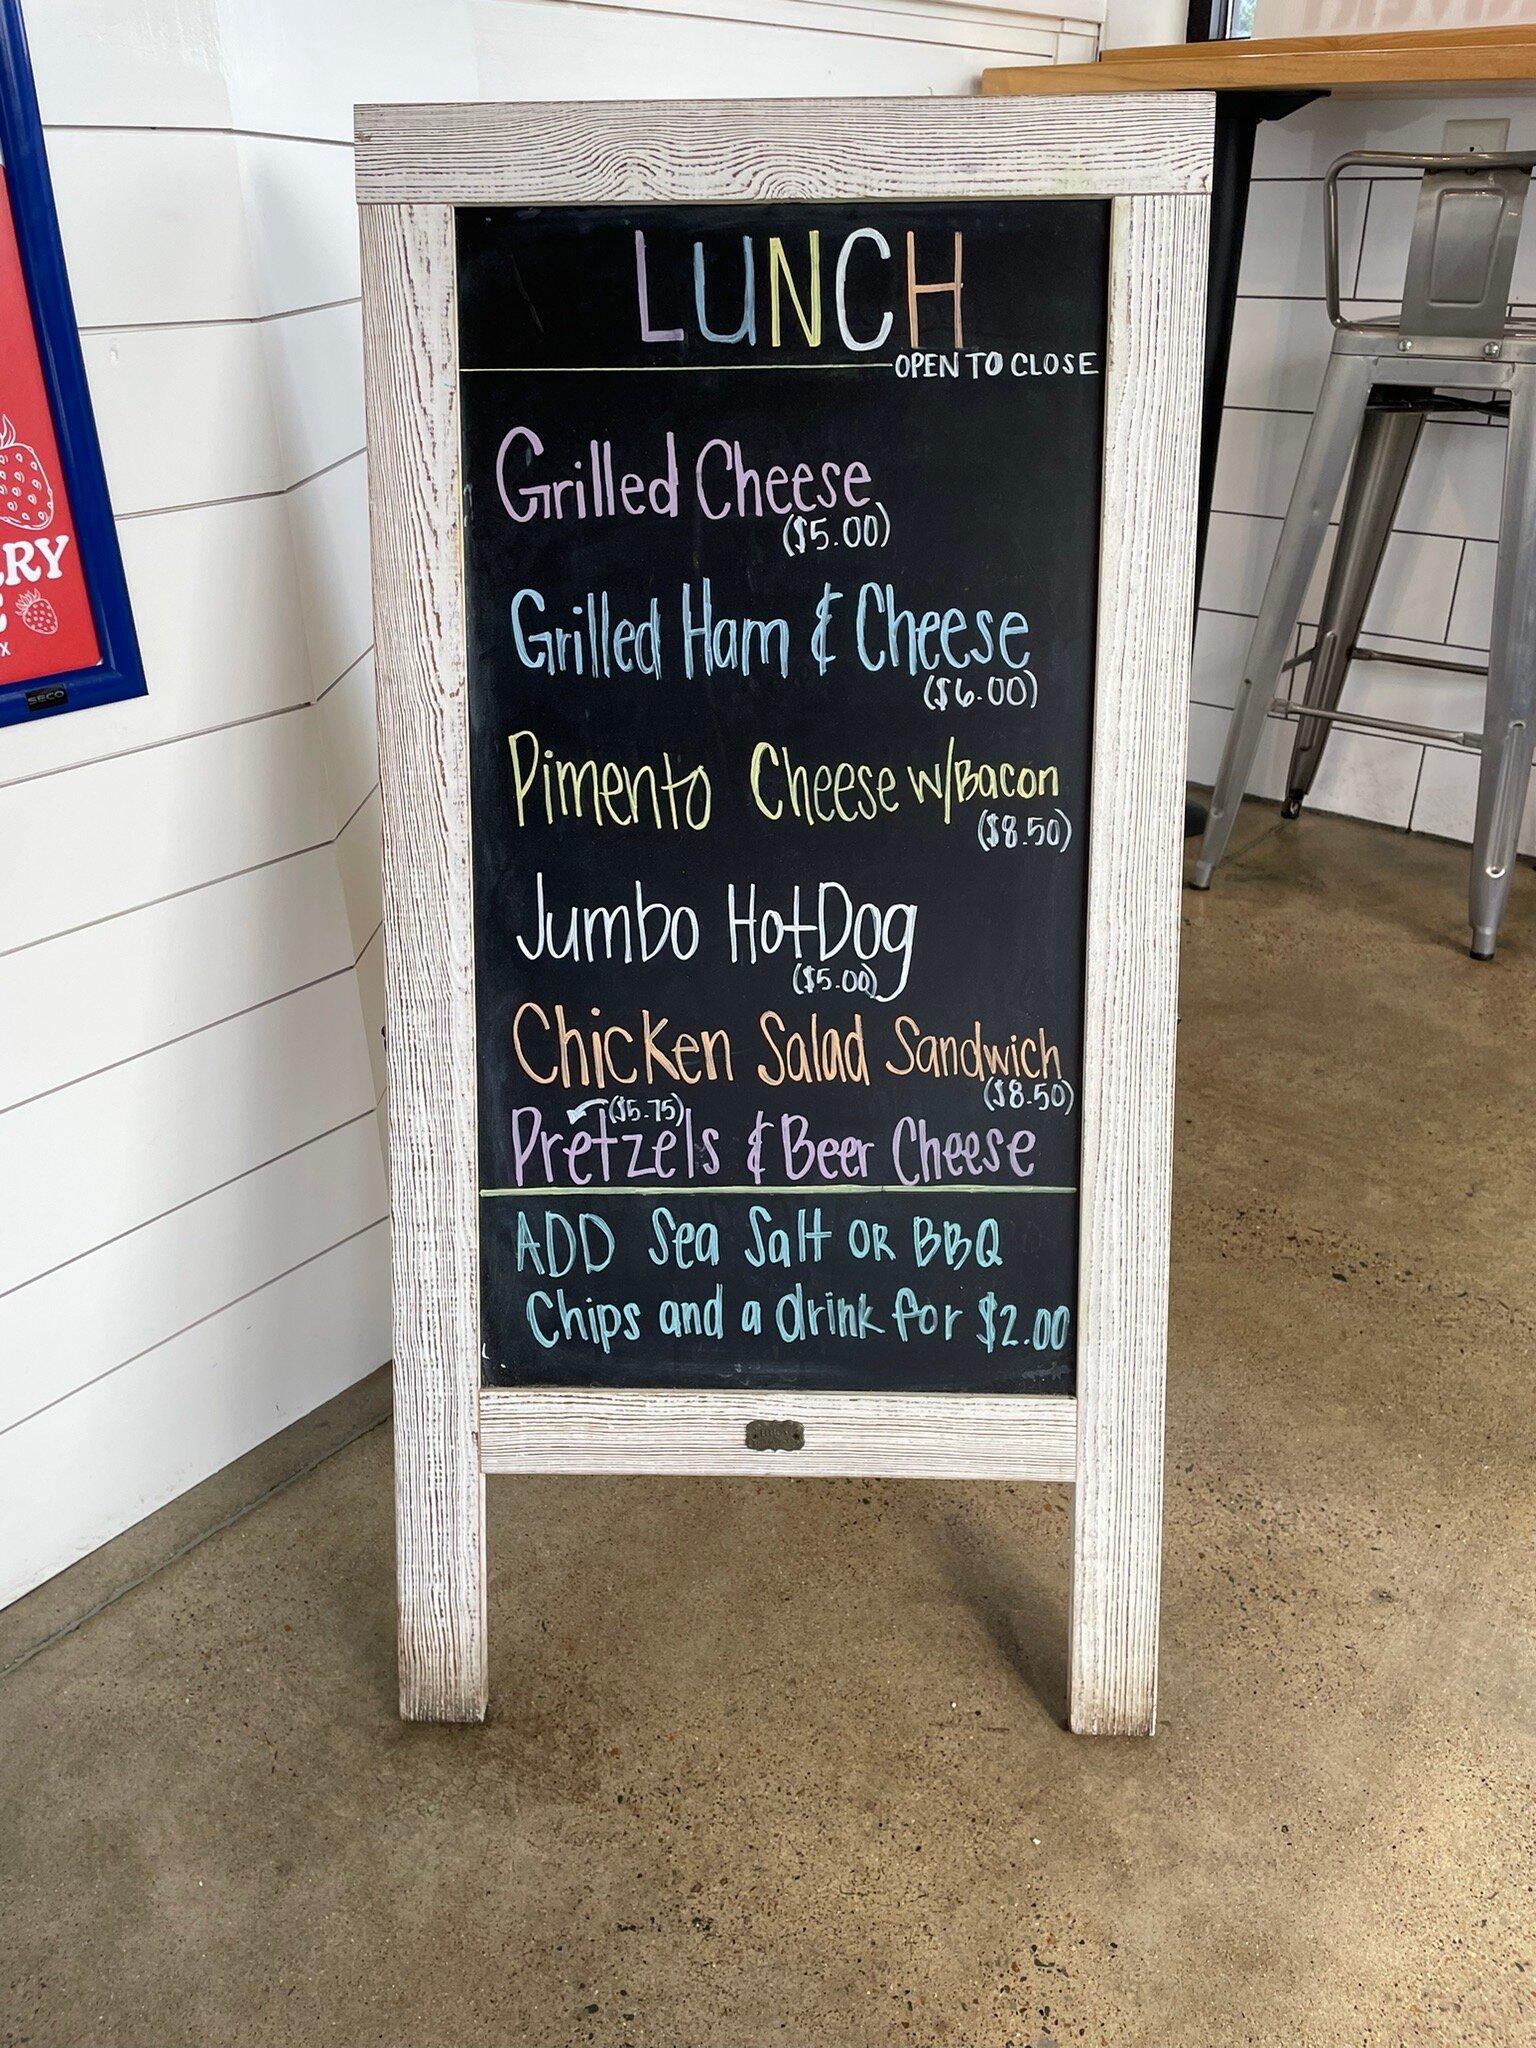 LUNCH
OPEN TO CLOSE
Grilled Cheese
($5.00)
Grilled Ham & Cheese
($6.00)
Pimento Cheese w/Bacon
($8.50)
Jumbo HotDog
($5.00)
Chicken Salad Sandwich
($8.50)
($5.75)
Pretzels & Beer Cheese
ADD Sea Salt OR BBQ
Chips and a drink for $2.00
RY
X
SECO